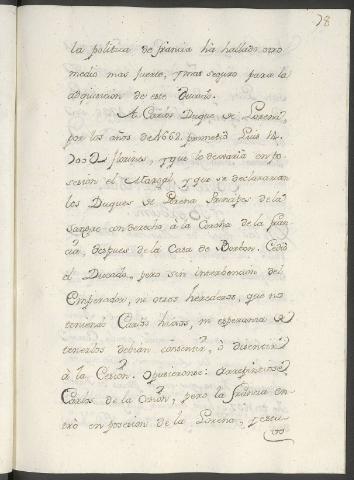 78
la politica de francia ha hallado otro
medio mas fuerte, y mas seguro para la
adquisicion de este Ducado.
A Carlos Duque de Lorena
por los años de 1662 prometió Luis 14.
florines, y que lo dexaria en po-
sesion el Marsal, y que se declararian
los Duques de Lorena Principes de la
sangre con derecho à la Corona de la Fran-
cia, despues de la Casa de Borbon. Cedió
el Ducado, pero sin intervencion del
Emperador, ni otros herederos, que no
teniendo Carlos hixos, ni esperanza de
tenerlos debian consentir, ò disentir
à la Cesion. Opusieronse: arrepintiose
Carlos de la Cesion, pero la francia en-
trò en posecion de la Lorena, y